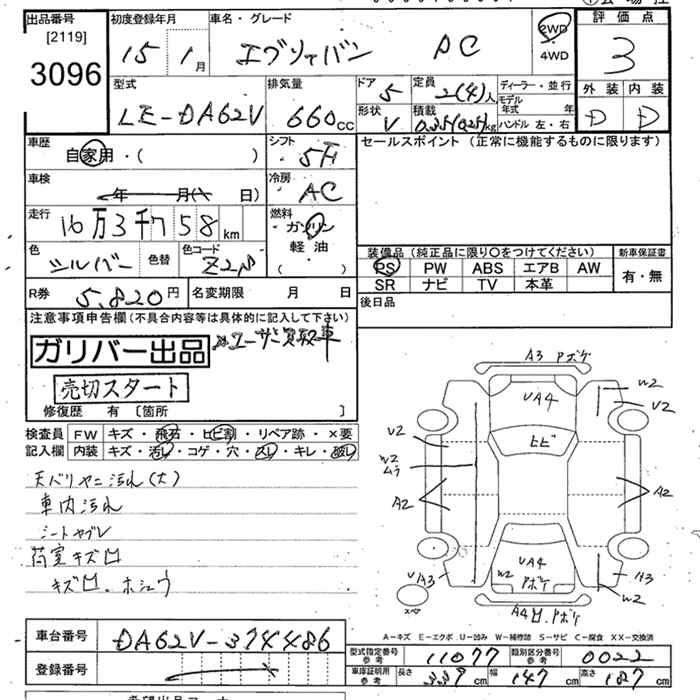 出品番号
[2119]
3096
初度登録年月
15 1月
車名・グレード
エブリイバン PC
2WD
・
4WD
評価点
3
外装 内装
D D
型式
LE-DA62V
排気量
660cc
ドア 5
定員 2(4)人
ディーラー・並行
モデル年式 年
形状 V
積載 0.35(0.25)kg
ハンドル 左・右
車歴
自家用・( )
シフト
5F
セールスポイント (正常に機能するものに限ります)
車検
年 月( 日)
冷房
AC
走行
16万3千758km
燃料
ガソリン
軽油
( )
色
シルバー
色替
色コード
Z2P
装備品 (純正品に限り〇をつけてください)
新車保証書
PS PW ABS エアB AW
SR ナビ TV 本革
有・無
R券 5,820円
名変期限 月 日
後日品
注意事項申告欄(不具合内容等は具体的に記入して下さい)
ガリバー出品
※ユーザー買取車
売切スタート
修復歴 有 [箇所 ]
検査員記入欄
FW キズ・飛石・ヒビ割・リペア跡・×要
内装 キズ・汚レ・コゲ・穴・スレ・キレ・破レ
天バリヤニ汚れ(大)
車内汚れ
シートヤブレ
荷室キズ凹
キズ凹、ホシュウ
A3 Pボケ
W2
UA4
V2
ヒビ
U2
W2
ムラ
A2
A2
UA4
W2
Pボケ
UA3
スペア
A3
W2
A4凹、Pボケ
A-キズ E-エクボ U-凹み W-補修跡 S-サビ C-腐食 XX-交換済
車台番号
DA62V-374486
登録番号
型式指定番号
参考
11077
類別区分番号
参考
0022
車庫証明用
参考
長さ 339cm
幅 147cm
高さ 187cm